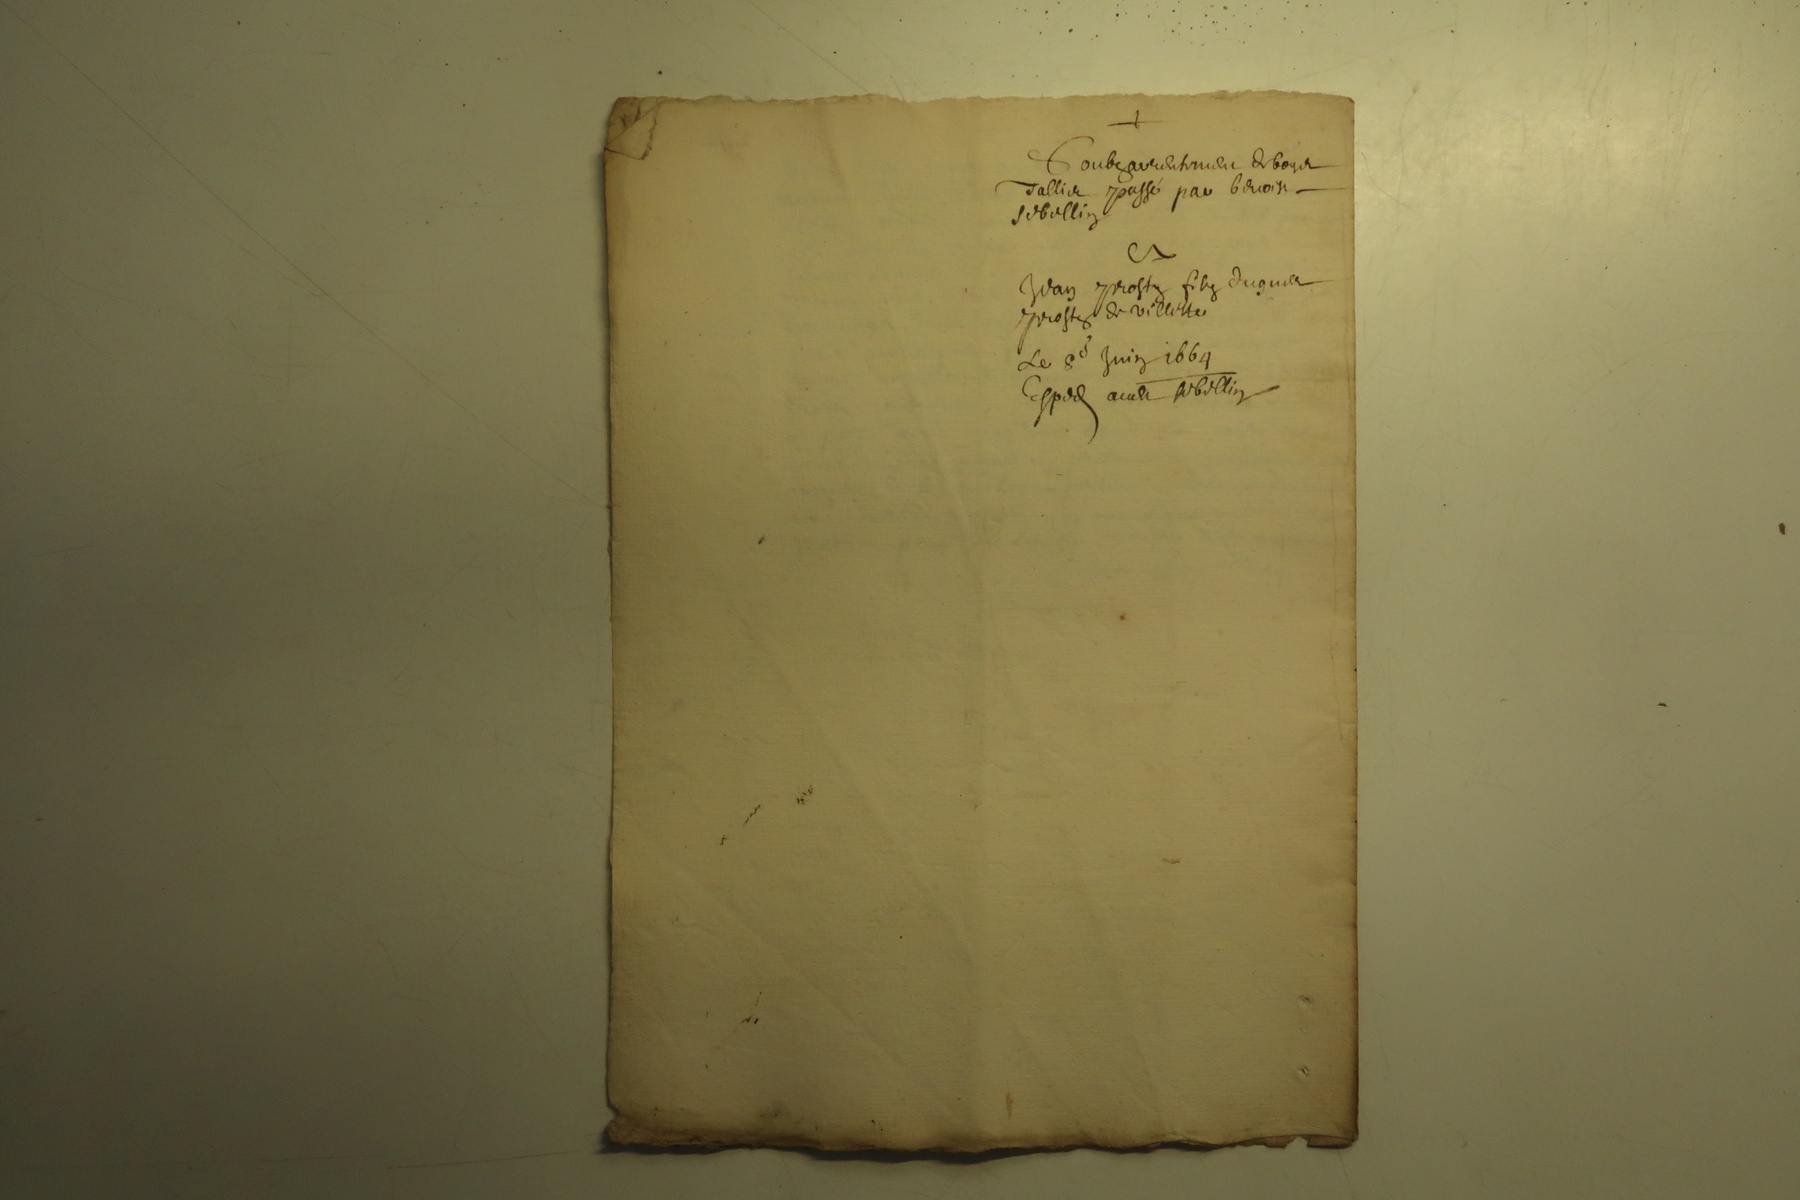 +
Soubzarrentemen de boys
Tallie passé par benoist
sebellin
A
Jean prostz filz dugues
prostz de villette
Le 8e Juin 1664
Exped avec sebellin